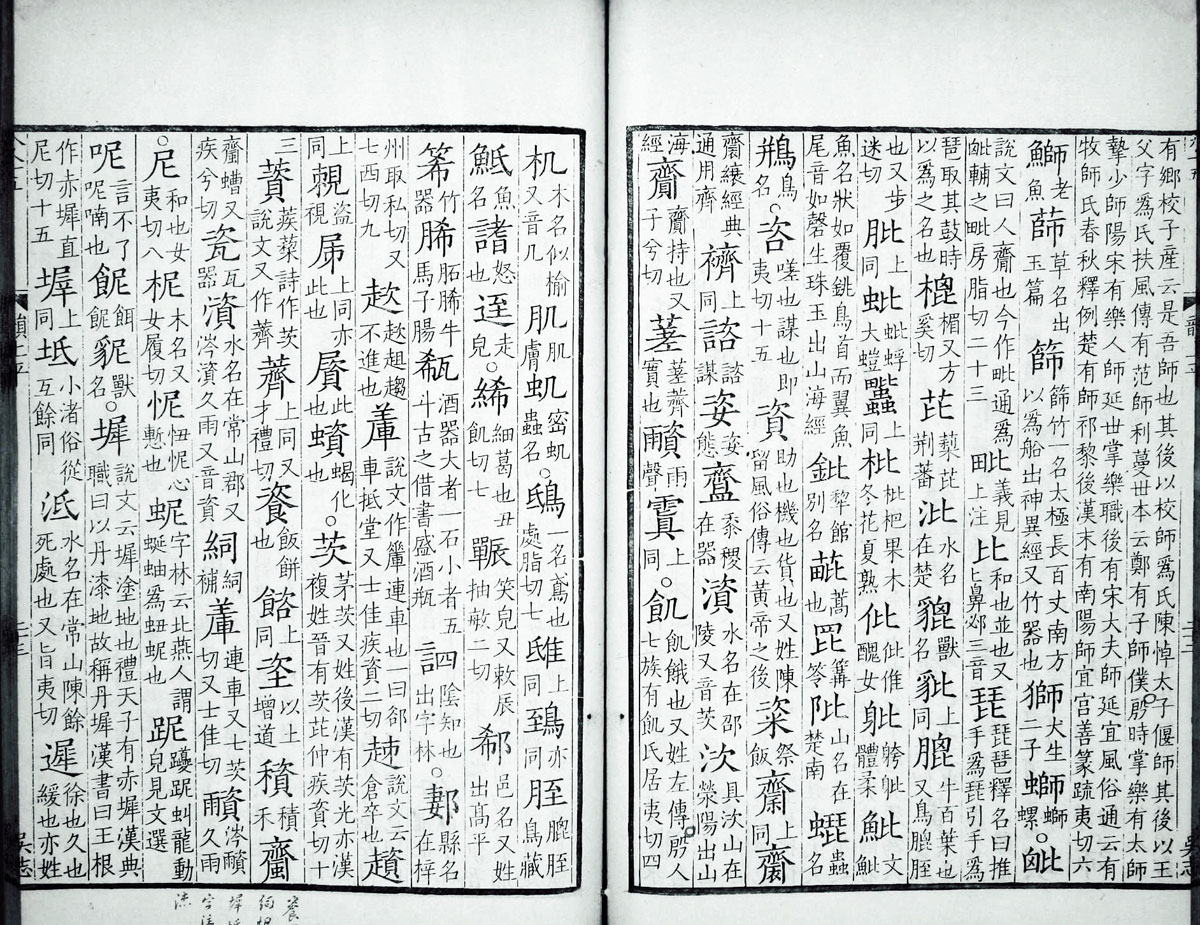 有鄉校子産云是吾師也其後以校師爲氏陳悼太子偃師其後以王
父字爲氏扶風傳有范師利蔓世本云鄭有子師僕殷時掌樂有太師
摯少師陽宋有樂人師延世掌樂職後有宋大夫師延宜風俗通云有
牧師氏春秋釋例楚有師祁黎後漢末有南陽師宜宫善篆疏夷切六
鰤老魚蒒草名出玉篇篩篩竹一名太極長百丈南方以爲船出神異經又竹器也獅犬生二子螄螄螺○毗
説文曰人齎也今作毗通爲毗輔之毗房脂切二十三毗義見上注比和也並也又上鼻邲三音琵琵琶釋名曰推手爲琵引手爲
琶取其鼓時以爲之名也㮰楣又方奚切芘藣芘荆蕃沘水名在楚貔獸名豼上同膍牛百葉也又鳥膍胵
也又步迷切肶上同蚍蚍蜉大螘䘍上同枇枇杷果木冬花夏熟仳仳倠醜女躮躮䠋體柔魮文魮
魚名狀如覆銚鳥首而翼魚尾音如磬生珠玉出山海經鈚犂錧别名蓖蒿也笓篝笭阰山名在楚南螕蟲名
鵧鳥名○咨嗟也謀也即夷切十五資助也機也貨也又姓陳留風俗傳云黄帝之後粢祭飯齋上同齌
齌縗經典通用齊𧞓上同諮諮謀姿姿態齍黍稷在器澬水名在邵陵又音茨㳄具㳄山在滎陽出山
海經齎齎持也又子兮切葘葘薺實也𩆂雨聲𩅰上同○飢飢餓也又姓左傳殷人七族有飢氏居夷切四
机木名似榆又音几肌肌膚虮密虮蟲名○鴟一名鳶也處脂切七鵻上同鵄亦上同胵膍胵鳥藏
䱃魚名䜄怒也𨒬走皃○絺細葛也丑飢切七䡅笑皃又敕辰抽敏二切郗邑名又姓出高平
䈙竹器脪䏔脪牛馬子腸瓻酒器大者一石小者五斗古之借書盛酒瓶訵陰知也出字林○郪縣名在梓
州取私切又七西切九趑趑趄趨不進也䔜説文作𥴧連車也一曰郤車抵堂又士佳疾資二切䞣説文云倉卒也趦
上同覗盗視㞘上同亦此也㞜此也蠀蠀蝎化也○茨茅茨又姓後漢有茨光亦漢複姓晉有茨芘仲疾資切十
三薋蒺蔾詩作茨説文又作薺薺上同又才禮切餈飯餅也䭣上同垐以土增道䅆積禾齏
齏螬又疾兮切瓷瓦器澬水名在常山郡又涔澬久雨又音資䋞䋞補䔜連車又七茨切又士佳切𩆂涔𩆂久雨
○尼和也女夷切八柅木名又女履切怩忸怩心慙也蚭字林云北燕人謂蜒蚰爲蚭蚭也跜躨跜虯龍動皃見文選
呢言不了呢喃也䬿餌䬿貎獸名○墀説文云墀塗地也禮天子有赤墀漢典職曰以丹漆地故稱丹墀漢書曰王根
作赤墀直尼切十五墀上同坻小渚俗從互餘同泜水名在常山陳餘死處也又旨夷切遲徐也久也緩也亦姓